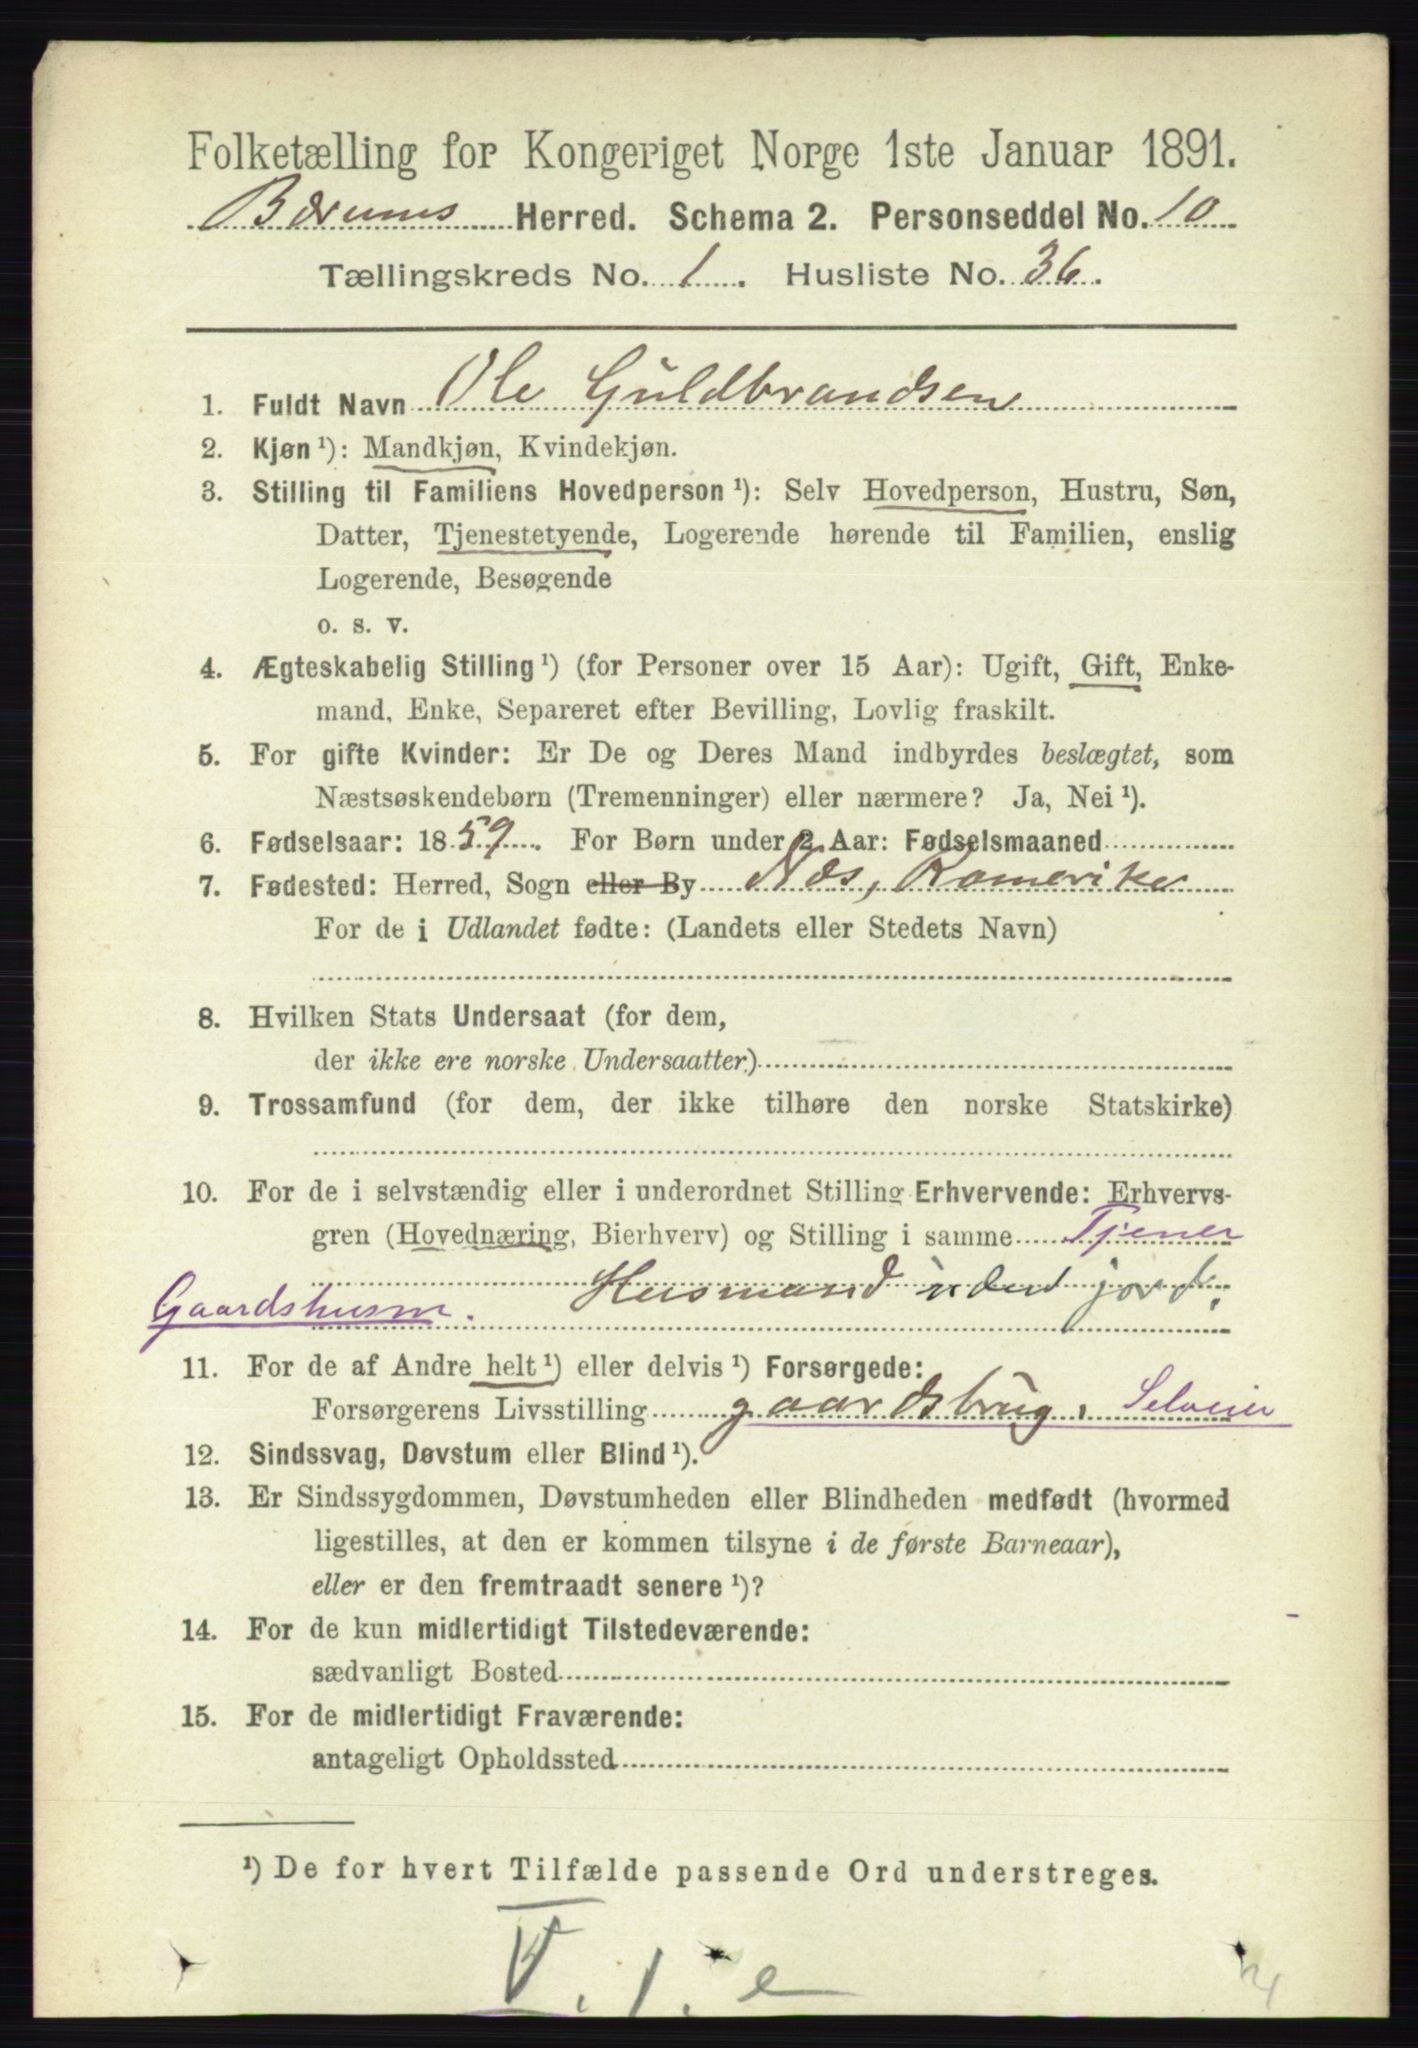 Folketælling for Kongeriget Norge 1ste Januar 1891.
Bærums Herred. Schema 2. Personseddel No. 10
Tællingskreds No. 1. Husliste No. 36.
1. Fuldt Navn Ole Guldbrandsen
2. Kjøn ¹): Mandkjøn, Kvindekjøn.
3. Stilling til Familiens Hovedperson ¹): Selv Hovedperson, Hustru, Søn,
Datter, Tjenestetyende, Logerende hørende til Familien, enslig
Logerende, Besøgende
o. s. v.
4. Ægteskabelig Stilling ¹) (for Personer over 15 Aar): Ugift, Gift, Enke-
mand, Enke, Separeret efter Bevilling, Lovlig fraskilt.
5. For gifte Kvinder: Er De og Deres Mand indbyrdes beslægtet, som
Næstsøskendebørn (Tremenninger) eller nærmere? Ja, Nei ¹).
6. Fødselsaar: 1859. For Børn under 2 Aar: Fødselsmaaned
7. Fødested: Herred, Sogn eller By Næs, Romerike
For de i Udlandet fødte: (Landets eller Stedets Navn)
8. Hvilken Stats Undersaat (for dem,
der ikke ere norske Undersaatter)
9. Trossamfund (for dem, der ikke tilhøre den norske Statskirke)
10. For de i selvstændig eller i underordnet Stilling Erhvervende: Erhvervs-
gren (Hovednæring, Bierhverv) og Stilling i samme Tjener
Husmand uden jord.
Gaardshusm.
11. For de af Andre helt ¹) eller delvis ¹) Forsørgede:
Forsørgerens Livsstilling gaardsbrug, Selveier
12. Sindssvag, Døvstum eller Blind ¹).
13. Er Sindssygdommen, Døvstumheden eller Blindheden medfødt (hvormed
ligestilles, at den er kommen tilsyne i de første Barneaar),
eller er den fremtraadt senere ¹)?
14. For de kun midlertidigt Tilstedeværende:
sædvanligt Bosted
15. For de midlertidigt Fraværende:
antageligt Opholdssted
¹) De for hvert Tilfælde passende Ord understreges.
V. 1. e